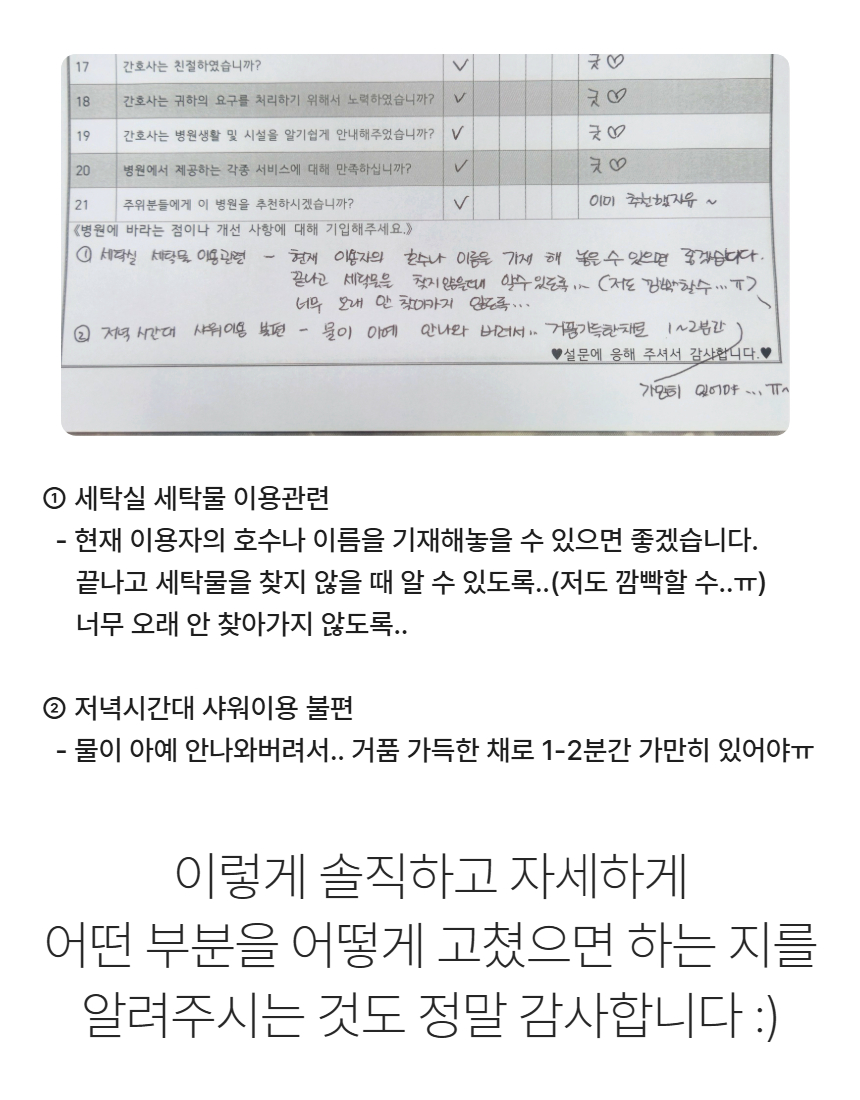 17 간호사는 친절하였습니까? ✓ 굿♡
18 간호사는 귀하의 요구를 처리하기 위해서 노력하였습니까? ✓ 굿♡
19 간호사는 병원생활 및 시설을 알기쉽게 안내해주었습니까? ✓ 굿♡
20 병원에서 제공하는 각종 서비스에 대해 만족하십니까? ✓ 굿♡
21 주위분들에게 이 병원을 추천하시겠습니까? ✓ 이미 추천했지유 ~
《병원에 바라는 점이나 개선 사항에 대해 기입해주세요.》
① 세탁실 세탁물 이용관련 - 현재 이용자의 호수나 이름을 기재 해 놓을 수 있으면 좋겠습니다.
끝나고 세탁물은 찾지않을때 알수있도록... (저도 깜빡할수...ㅠ)
너무 오래 안 찾아가지 않도록...
② 저녁시간대 샤워이용 불편 - 물이 아예 안나와 버려서.. 거품가득한채로 1~2분간
♥설문에 응해 주셔서 감사합니다.♥
가만히 있어야 ...ㅠ~
① 세탁실 세탁물 이용관련
- 현재 이용자의 호수나 이름을 기재해놓을 수 있으면 좋겠습니다.
끝나고 세탁물을 찾지 않을 때 알 수 있도록..(저도 깜빡할 수..ㅠ)
너무 오래 안 찾아가지 않도록..
② 저녁시간대 샤워이용 불편
- 물이 아예 안나와버려서.. 거품 가득한 채로 1-2분간 가만히 있어야ㅠ
이렇게 솔직하고 자세하게
어떤 부분을 어떻게 고쳤으면 하는 지를
알려주시는 것도 정말 감사합니다 :)